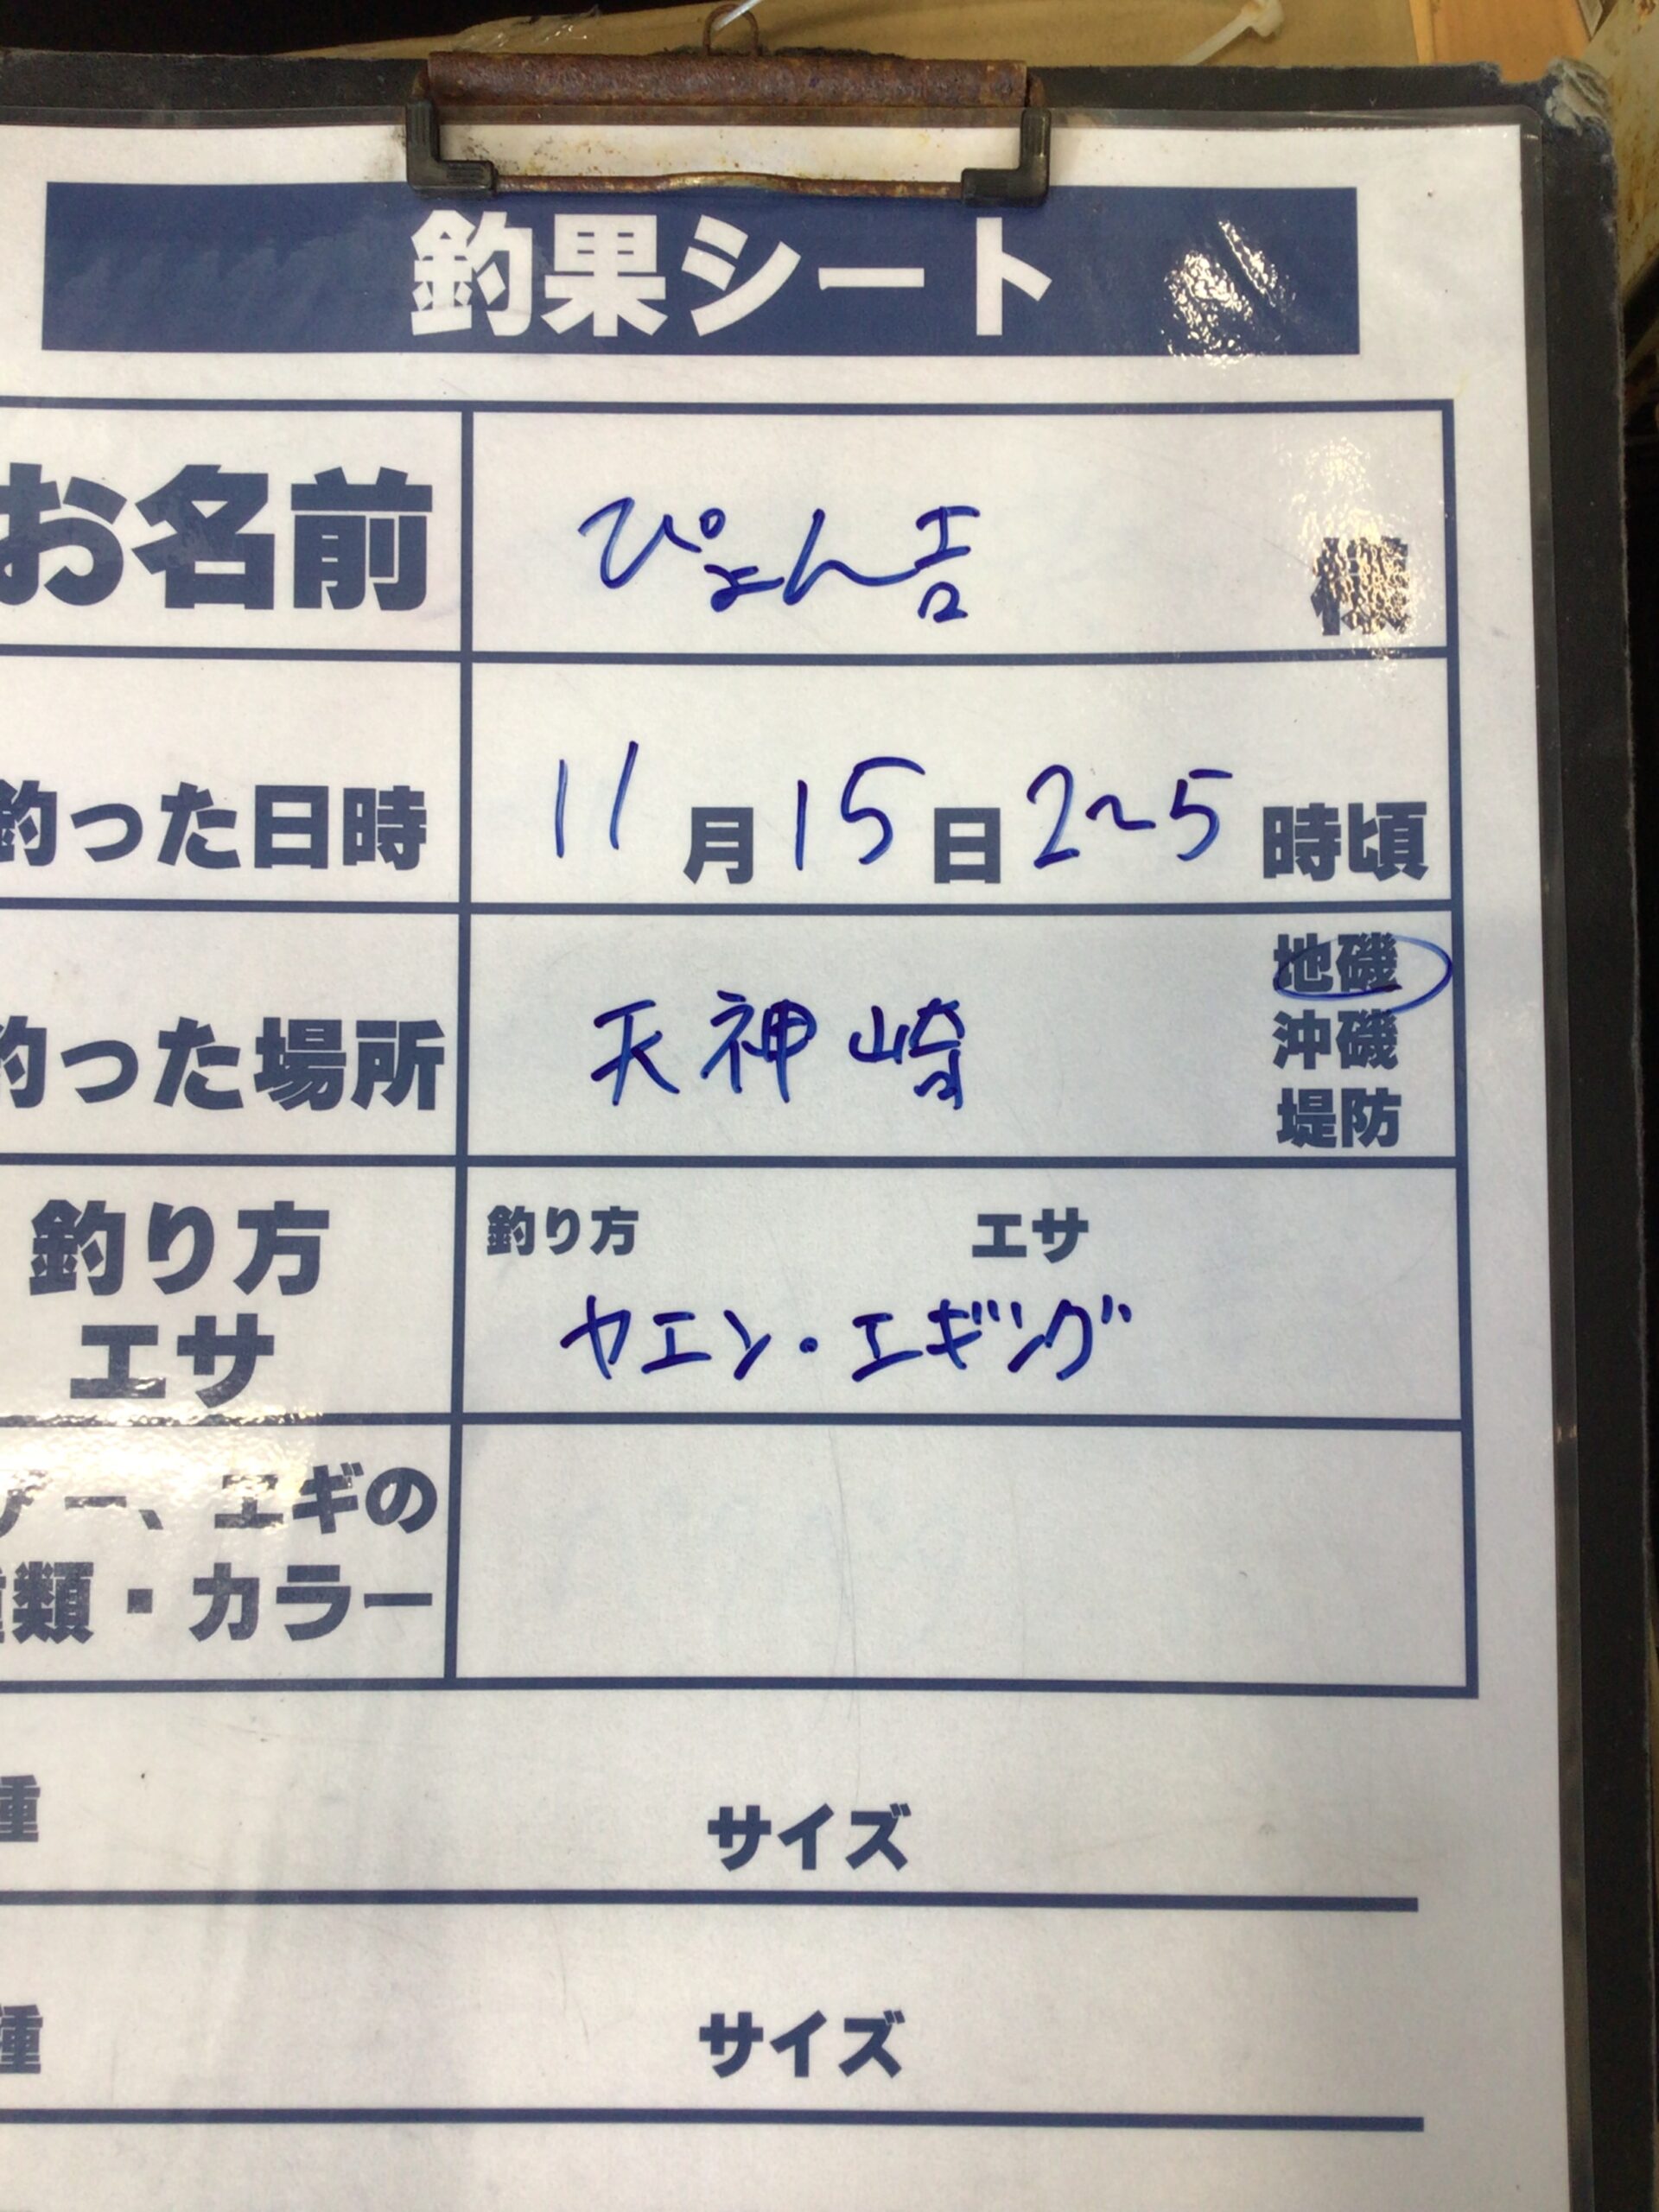 釣果シート
お名前 ぴょん吉 様
釣った日時 11月15日2~5時頃
釣った場所 天神崎
地磯
沖磯
堤防
釣り方
エサ
釣り方 エサ
ヤエン・エギング
ー、エギの
種類・カラー
種 サイズ
種 サイズ